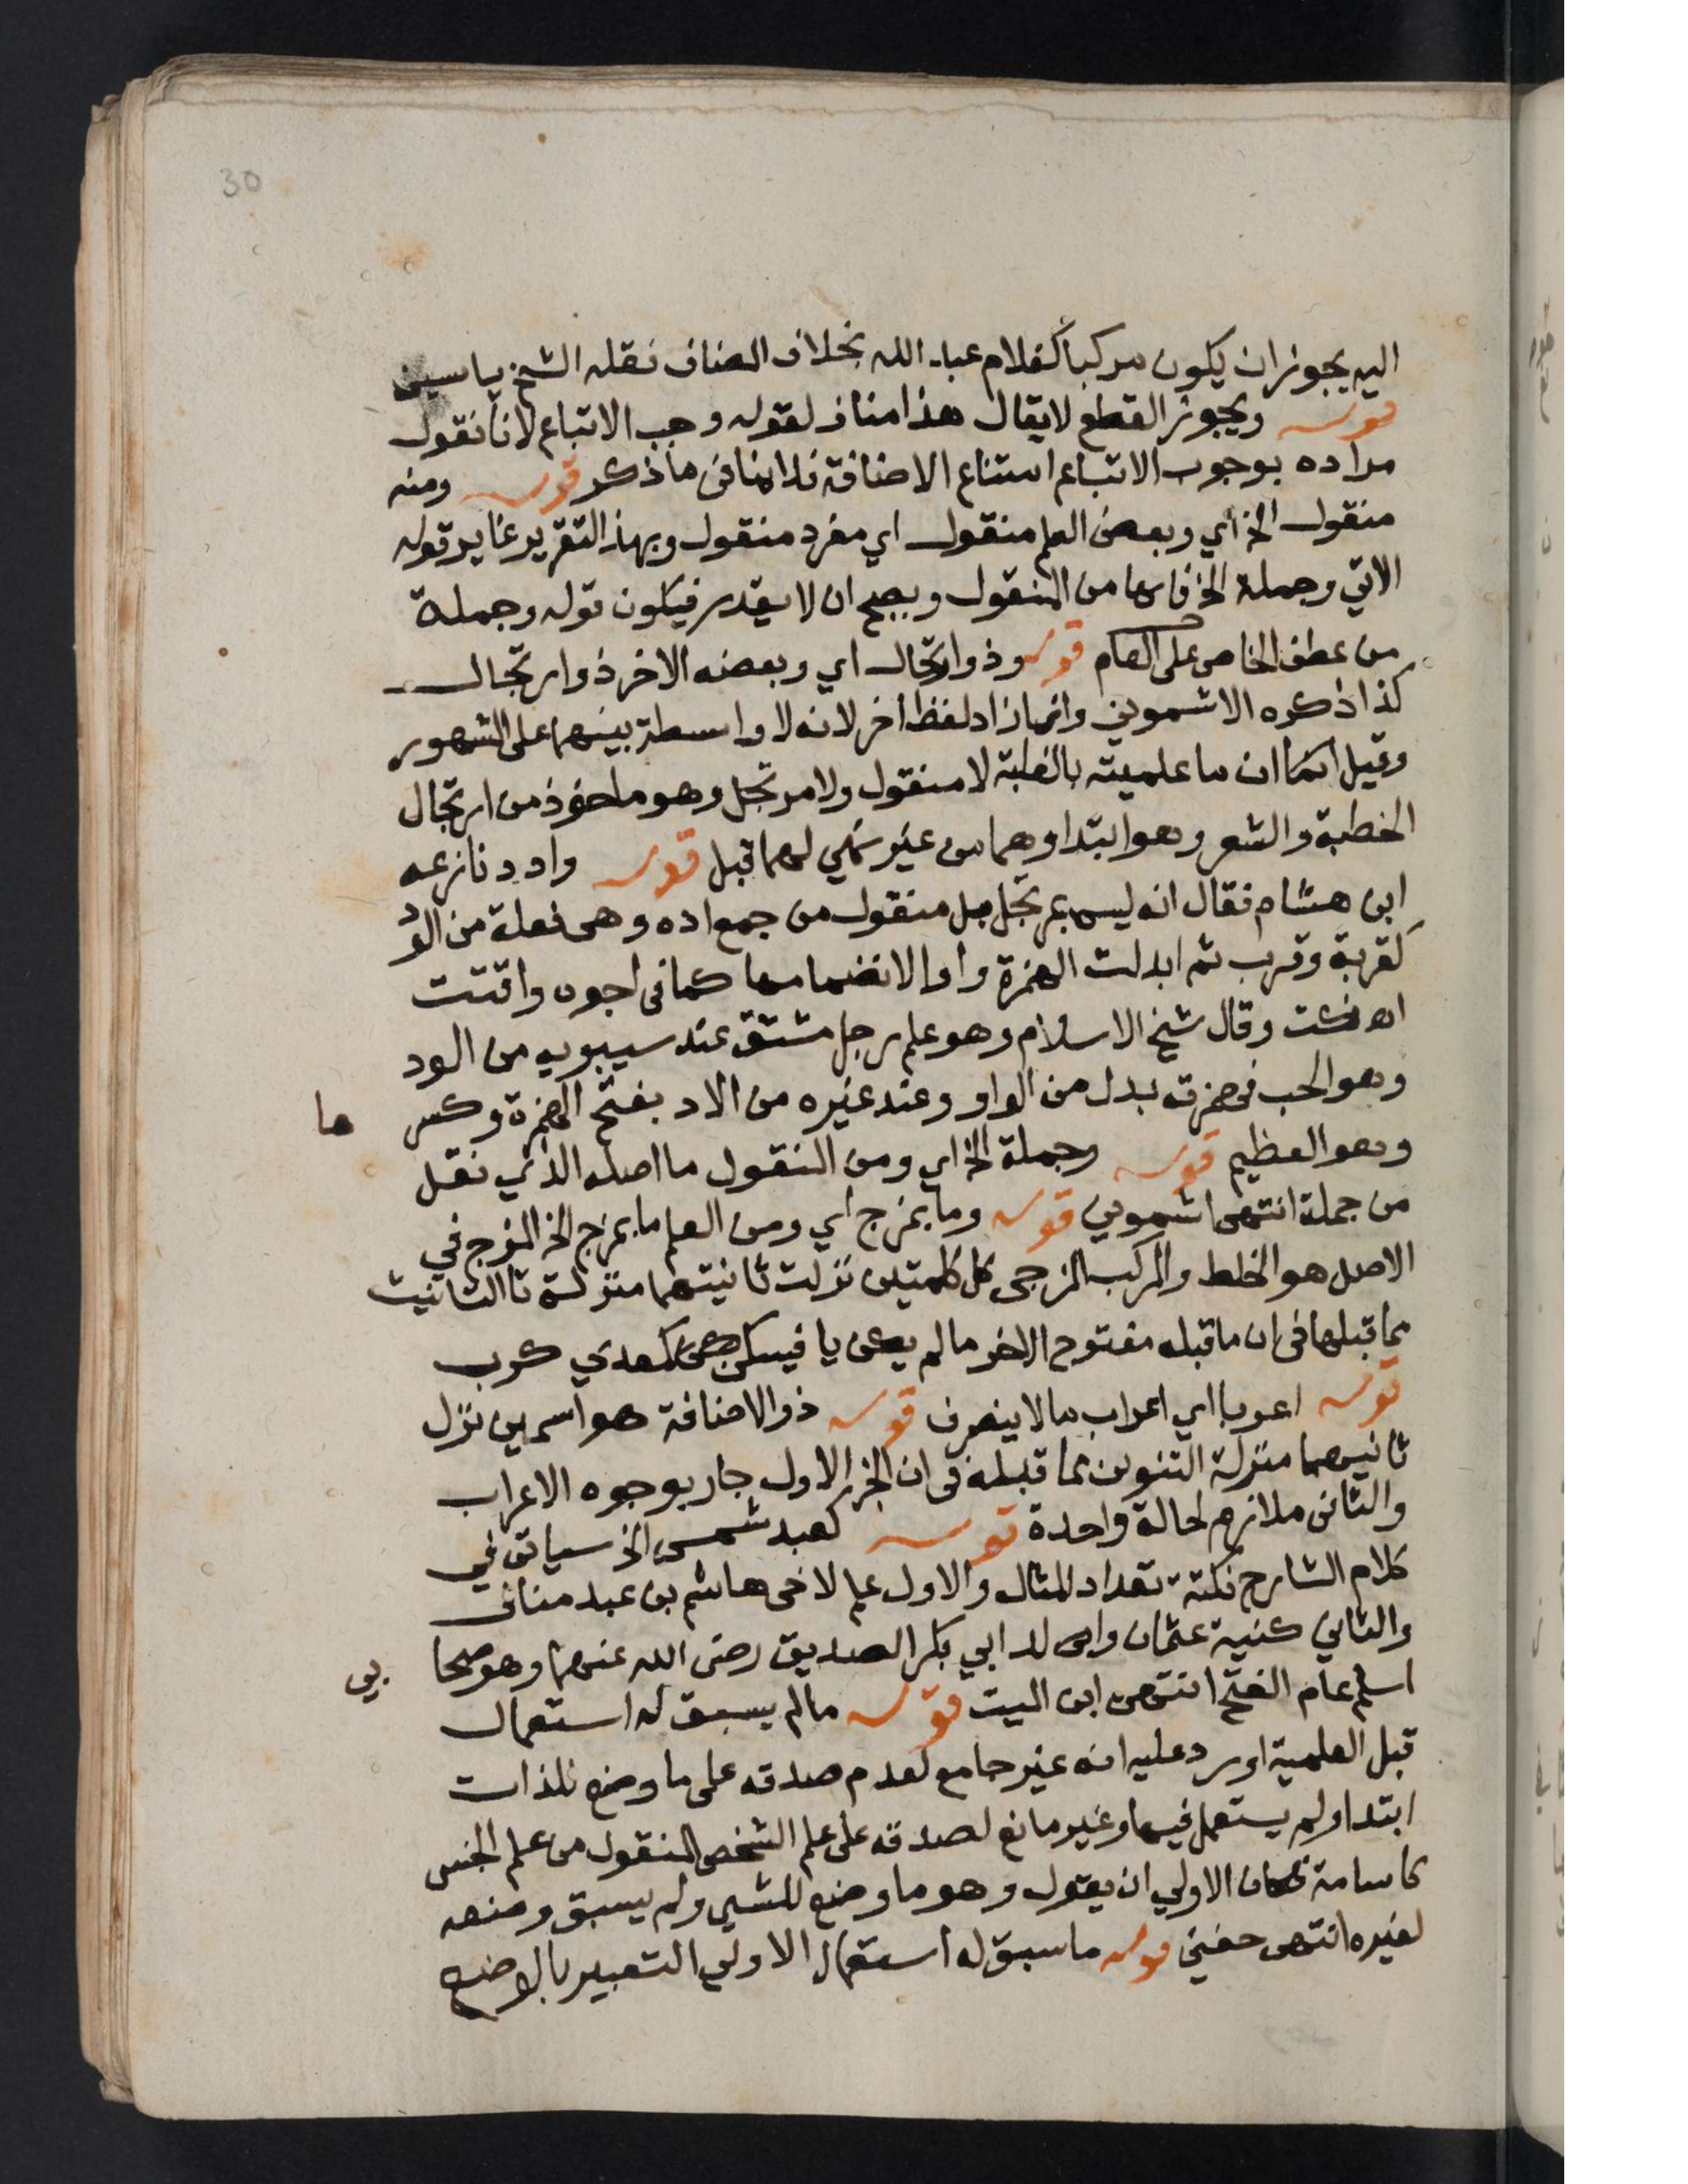 30
اليه يجوز ان يكون مركبا كغلام عبد الله بخلاف المضاف نقله الشيخ ياسين
قوله ويجوز القطع لا يقال هذا مناف لقوله وجب الاتباع لانا نقول
مراده بوجوب الاتباع امتناع الاضافة فلا ينافى ما ذكر قوله ومنه
منقول الخ اي وبعض العلم منقول اي مفرد منقول وبهذ التقرير غاير قوله
الاتي وجملة الخ فانها من المنقول ويصح ان لا يقدر فيكون قوله وجملة
من عطف الخاص على العام قوله وذو ارتجال اي وبعضه الاخر ذو ارتجال
كذا ذكره الاشموني وانما زاد لفظ اخر لانه لا واسطة بينهما على المشهور
وقيل انما ان ما علميته بالغلبة لا منقول ولا مرتجل وهو ماخوذ من ارتجال
الخطبة والشعر وهو ابتداوهما من غير تهيي لهما قبل قوله وادد نازعه
ابن هشام فقال انه ليس بمرتجل بل منقول من جمع اده وهى فعلة من الود
كقربة وقرب ثم ابدلت الهمزة واوا لانضمامها كما فى اجوه واقتت
اه نكت وقال شيخ الاسلام وهو علم رجل مشتق عند سيبويه من الود
وهو الحب فهمزته بدل من الواو وعند غيره من الاد بفتح الهمزة وكسر ها
وهو العظيم قوله وجملة الخ اي ومن المنقول ما اصله الذي نقل
من جملة انتهى اشموني قوله وما بمزج اي ومن العلم ما بمزج الخ المزج في
الاصل هو الخلط والمركب المزجى كل كلمتين نزلت ثانيتهما منزلة تا التانيث
مما قبلها فى ان ما قبله مفتوح الاخر ما لم يكن يا فيسكن كمعدي كرب
قوله اعربا اي اعراب ما لا ينصرف قوله ذو الاضافة هو اسمين نزل
ثانيهما منزلة التنوين مما قبله فى ان الجزء الاول جار بوجوه الاعراب
والثانى ملازم لحالة واحدة قوله كعبد شمس الخ سياتى في
كلام الشارح نكتة تعداد المثال والاول علم لاخى هاشم بن عبد مناف
والثاني كنية عثمان والد ابي بكر الصديق رضى الله عنهما وهو صحا بي
اسلم عام الفتح انتهى ابن الميت قوله ما لم يسبق له استعمال
قبل العلمية اورد عليه انه غير جامع لعدم صدقه على ما وضع للذات
ابتدا ولم يستعمل فيها وغير مانع لصدقه على علم الشخص المنقول من علم الجنس
كاسامة فكان الاولي ان يقول وهو ما وضع للشي ولم يسبق وضعه
لغيره انتهى حفني قوله ما سبق له استعمال الاولي التعبير بالوضع